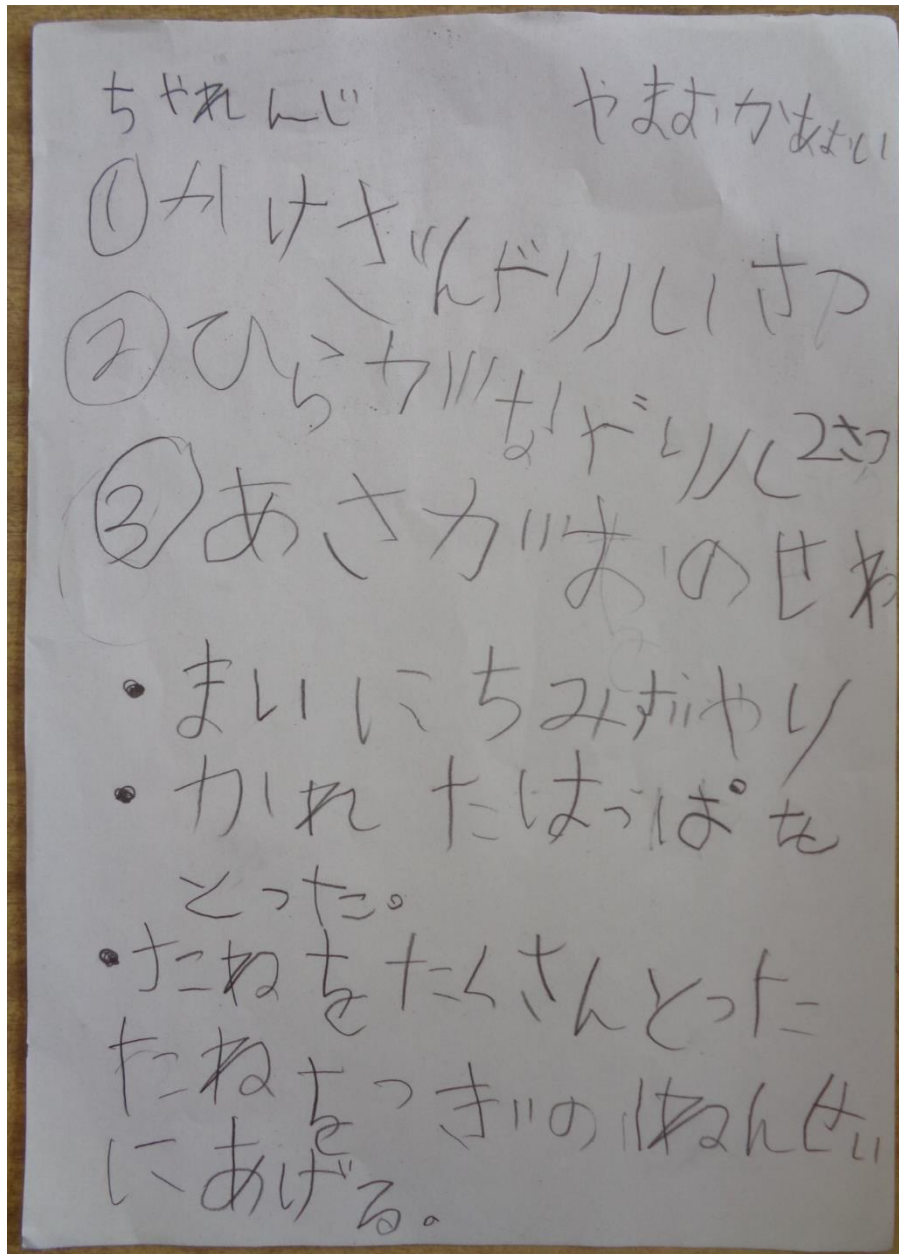 ちゃれんじ やまおかあおい
①かけざんドリル1さつ
②ひらがなドリル2さつ
③あさがおのせわ
・まいにちみずやり
・かれたはっぱを
とった。
・たねをたくさんとった
たねをつぎの1ねんせい
にあげる。